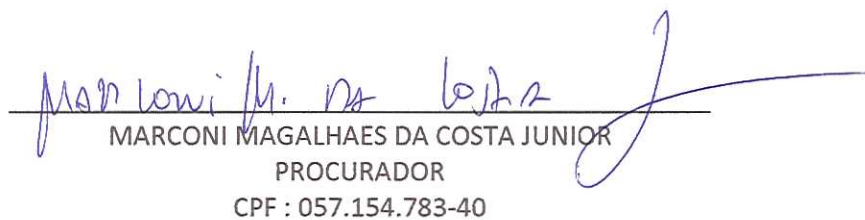 Marconi M. da Costa J
MARCONI MAGALHAES DA COSTA JUNIOR
PROCURADOR
CPF : 057.154.783-40